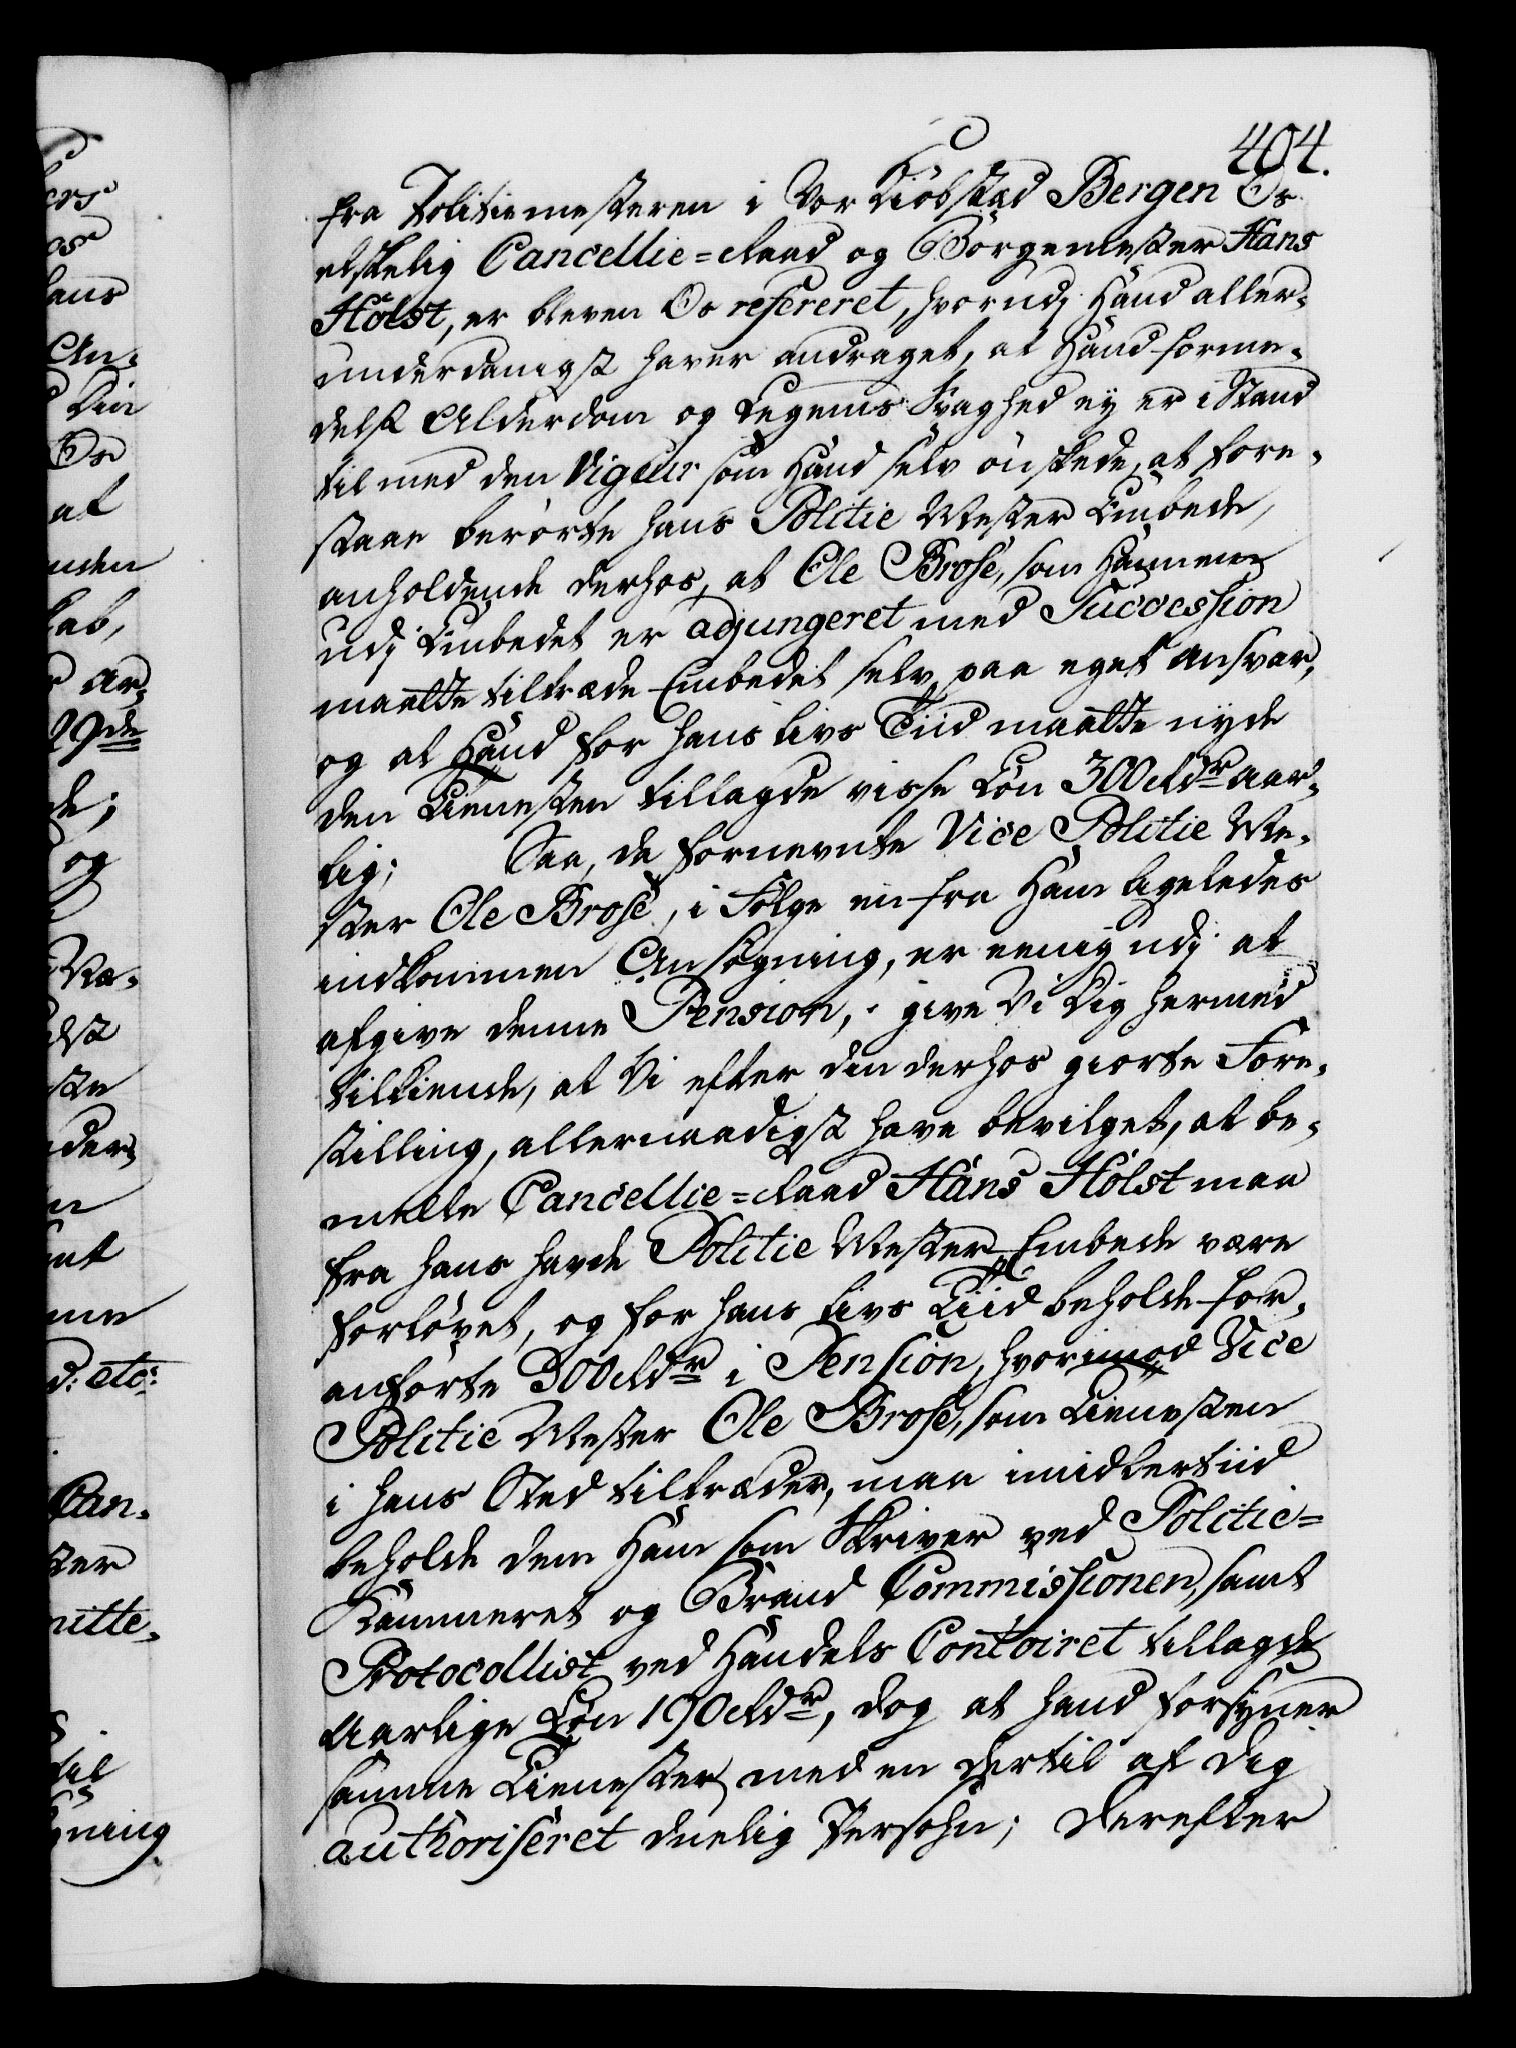 404.
fra Politiemesteren i Vor Kiöbstæd Bergen Os
elskelig Cancellie=Raad og Borgemester Hans
Holst, er bleven Os refereret, hvorudj Hand aller-
underdanigst haver andraget, at Hand forme-
delst Alderdom og Legems Svaghed ey er i Stand
til med den Vigeur som Hand selv önskede, at fore-
staae berörte hans Politie Mester Embede,
anholdende derhos, at Ole Brose, som Hannem
udj Embedet er adjungeret med Succession
maatte tiltræde Embedet selv paa eget Ansvar,
og at Hand for hans Livs Tiid maatte nyde
den Tienesten tillagde visse Lön 300 Rdr aar-
lig; Saa, da fornevnte Vice Politie Me-
ster Ole Brose, i Fölge en fra Ham ligeledes
indkommen Ansögning, er eenig udj at
afgive denne Pension, give Vi Dig hermed
tilkiende, at Vi efter den derhos giorte Fore-
stilling, allernaadigst have bevilget, at be-
melte Cancellie=Raad Hans Holst maa
fra hans havde Politie Mester Embede være
forlövet, og for hans Livs Tiid beholde for-
anförte 300 Rdr i Pension, hvorimod Vice
Politie Mester Ole Brose, som Tienesten
i hans Sted tiltræder, maa imidlertiid
beholde dem Ham som Skriver ved Politie=
Kammeret og Brand Commissionen, samt
Protocollist ved Handels Contoiret tillagde
Aarlige Lön 190 Rdr, dog at hand forsyner
samme Tienester med en dertil af Dig
authoriseret duelig Persohn; Derefter